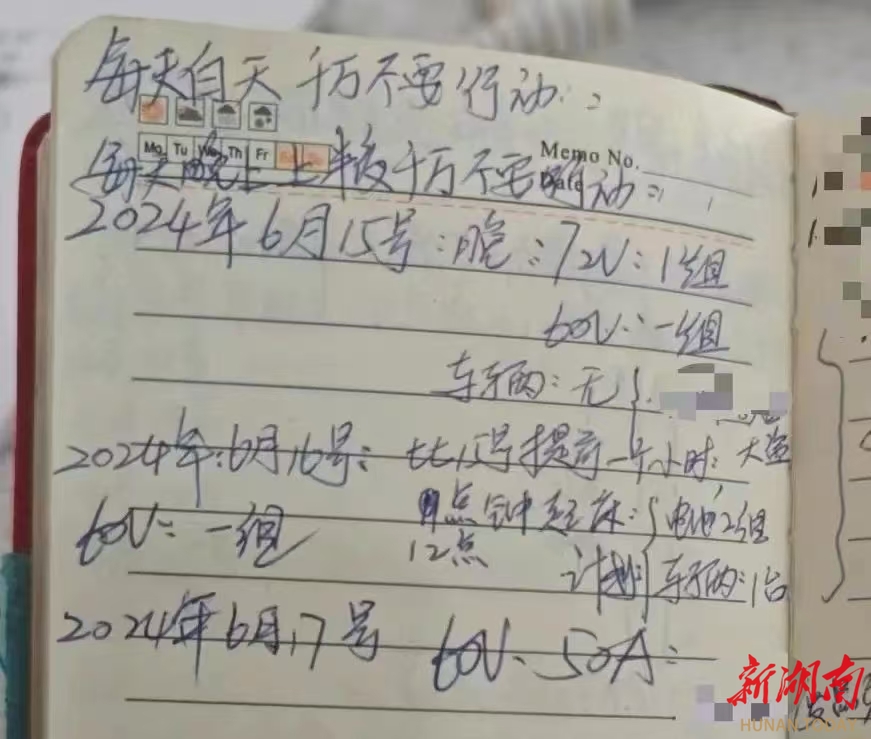 每天白天 千万不要行动：
Mo Tu We Th Fr
Memo No.
Date
每天晚上上半夜千万不要行动：
2024年6月15号：晚：72V：1组
60V：一组
车辆：无
2024年6月16号：比15号提前一个小时：大盗
60V：一组 点钟起床：电池2组
12点
计划 车辆：1台
2024年6月17号 60V、50A：
新湖南
HUNAN TODAY